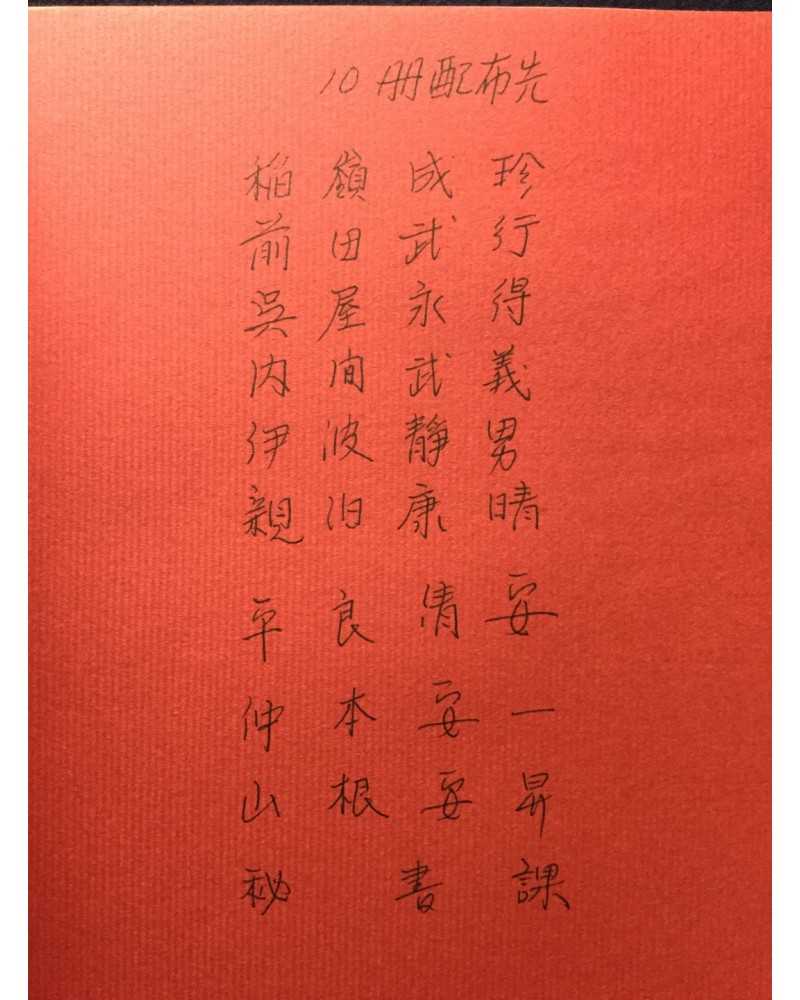 10冊配布先
稲嶺成珍
前田武行
呉屋永得
内間武義
伊波静男
親泊康晴
平良清安
仲本安一
山根安昇
秘書課